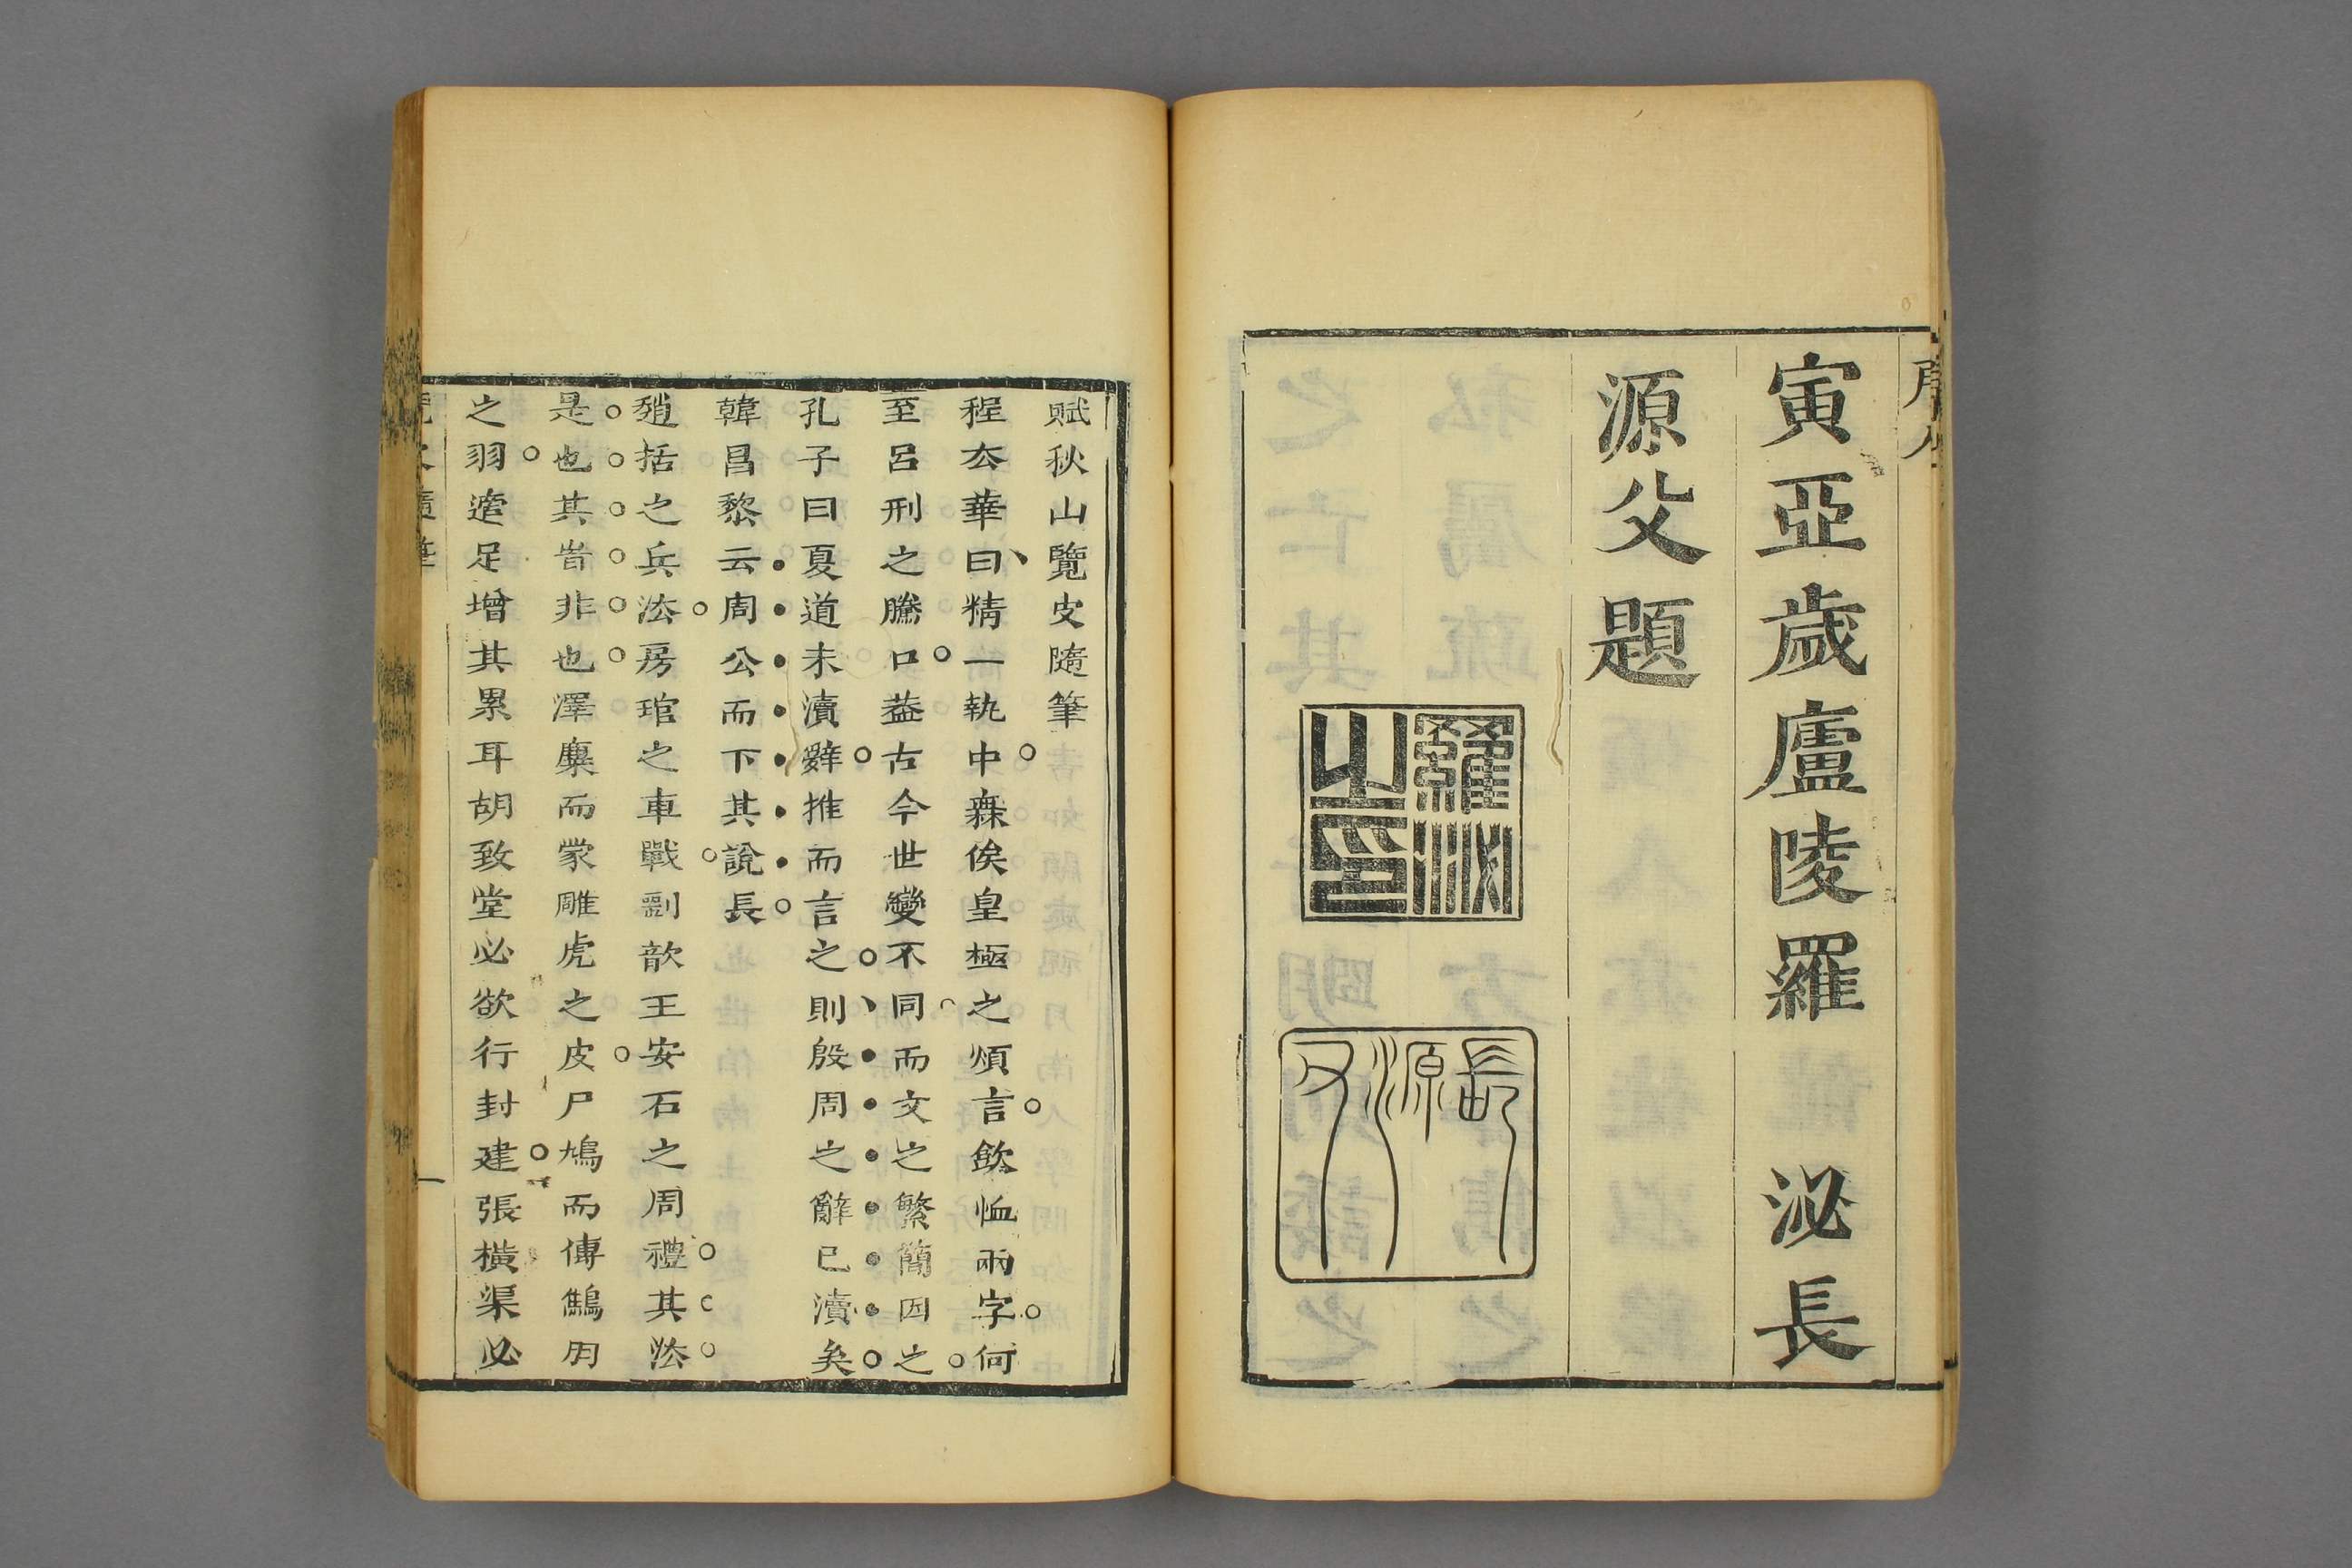 寅亞歲廬陵羅 泌長
源父題
羅泌之印
長源父
賦秋山覽史隨筆
程去華曰精一執中無俟皇極之煩言欽恤兩字何
至呂刑之騰口葢古今世變不同而文之繁簡因之
孔子曰夏道未瀆辭推而言之則殷周之辭已瀆矣
韓昌黎云周公而下其說長
趙括之兵法房琯之車戰劉歆王安石之周禮其法
是也其峕非也澤麋而蒙雕虎之皮尸鳩而傳鷦明
之羽適足增其累耳胡致堂必欲行封建張橫渠必